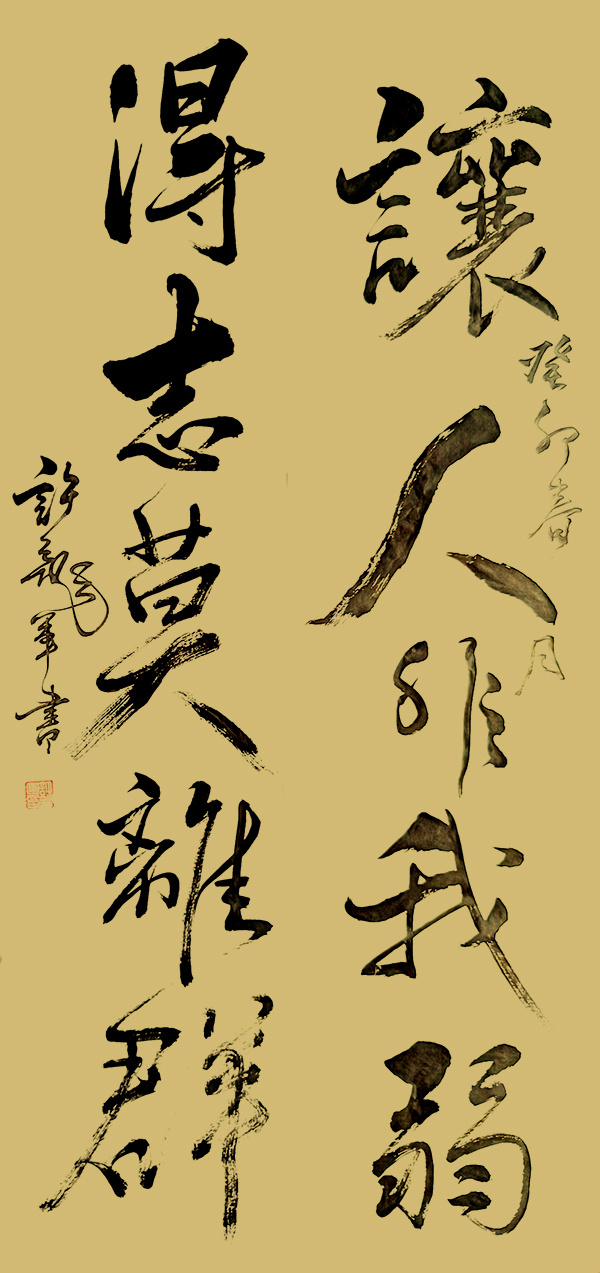 讓人非我弱
得志莫離群
癸卯春月
許龍軍書